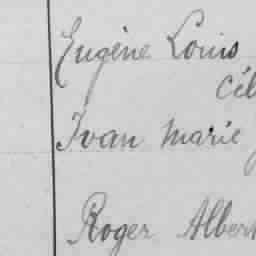 Eugène Louis
Cél
Ivan Marie
Roger Albert